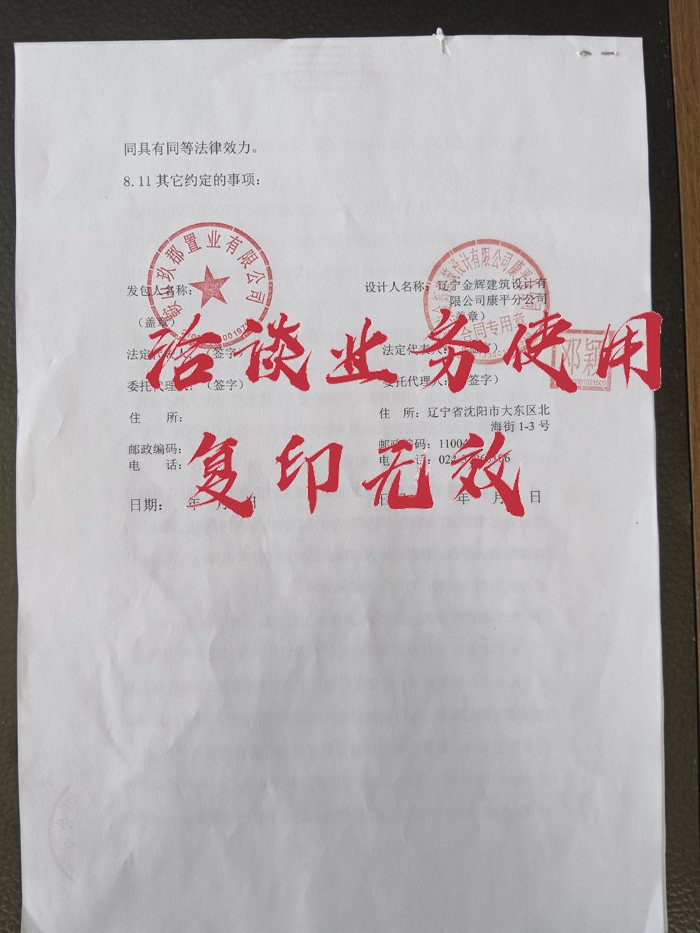 同具有同等法律效力。
8.11 其它约定的事项：
鞍山玖郡置业有限公司
发包人名称：
（盖章
法定代
签字）
委托代理人：（签字）
住 所：
邮政编码：
电 话：
日期： 年 月 日
设计有限公司康平
合同专用章
设计人名称：辽宁金辉建筑设计有
限公司康平分公司
盖章）
法定代表人：
邓颖
委托代理人：（签字）
住 所：辽宁省沈阳市大东区北
海街 1-3 号
邮政编码：11004
电 话：024
年 月 日
洽谈业务使用
复印无效